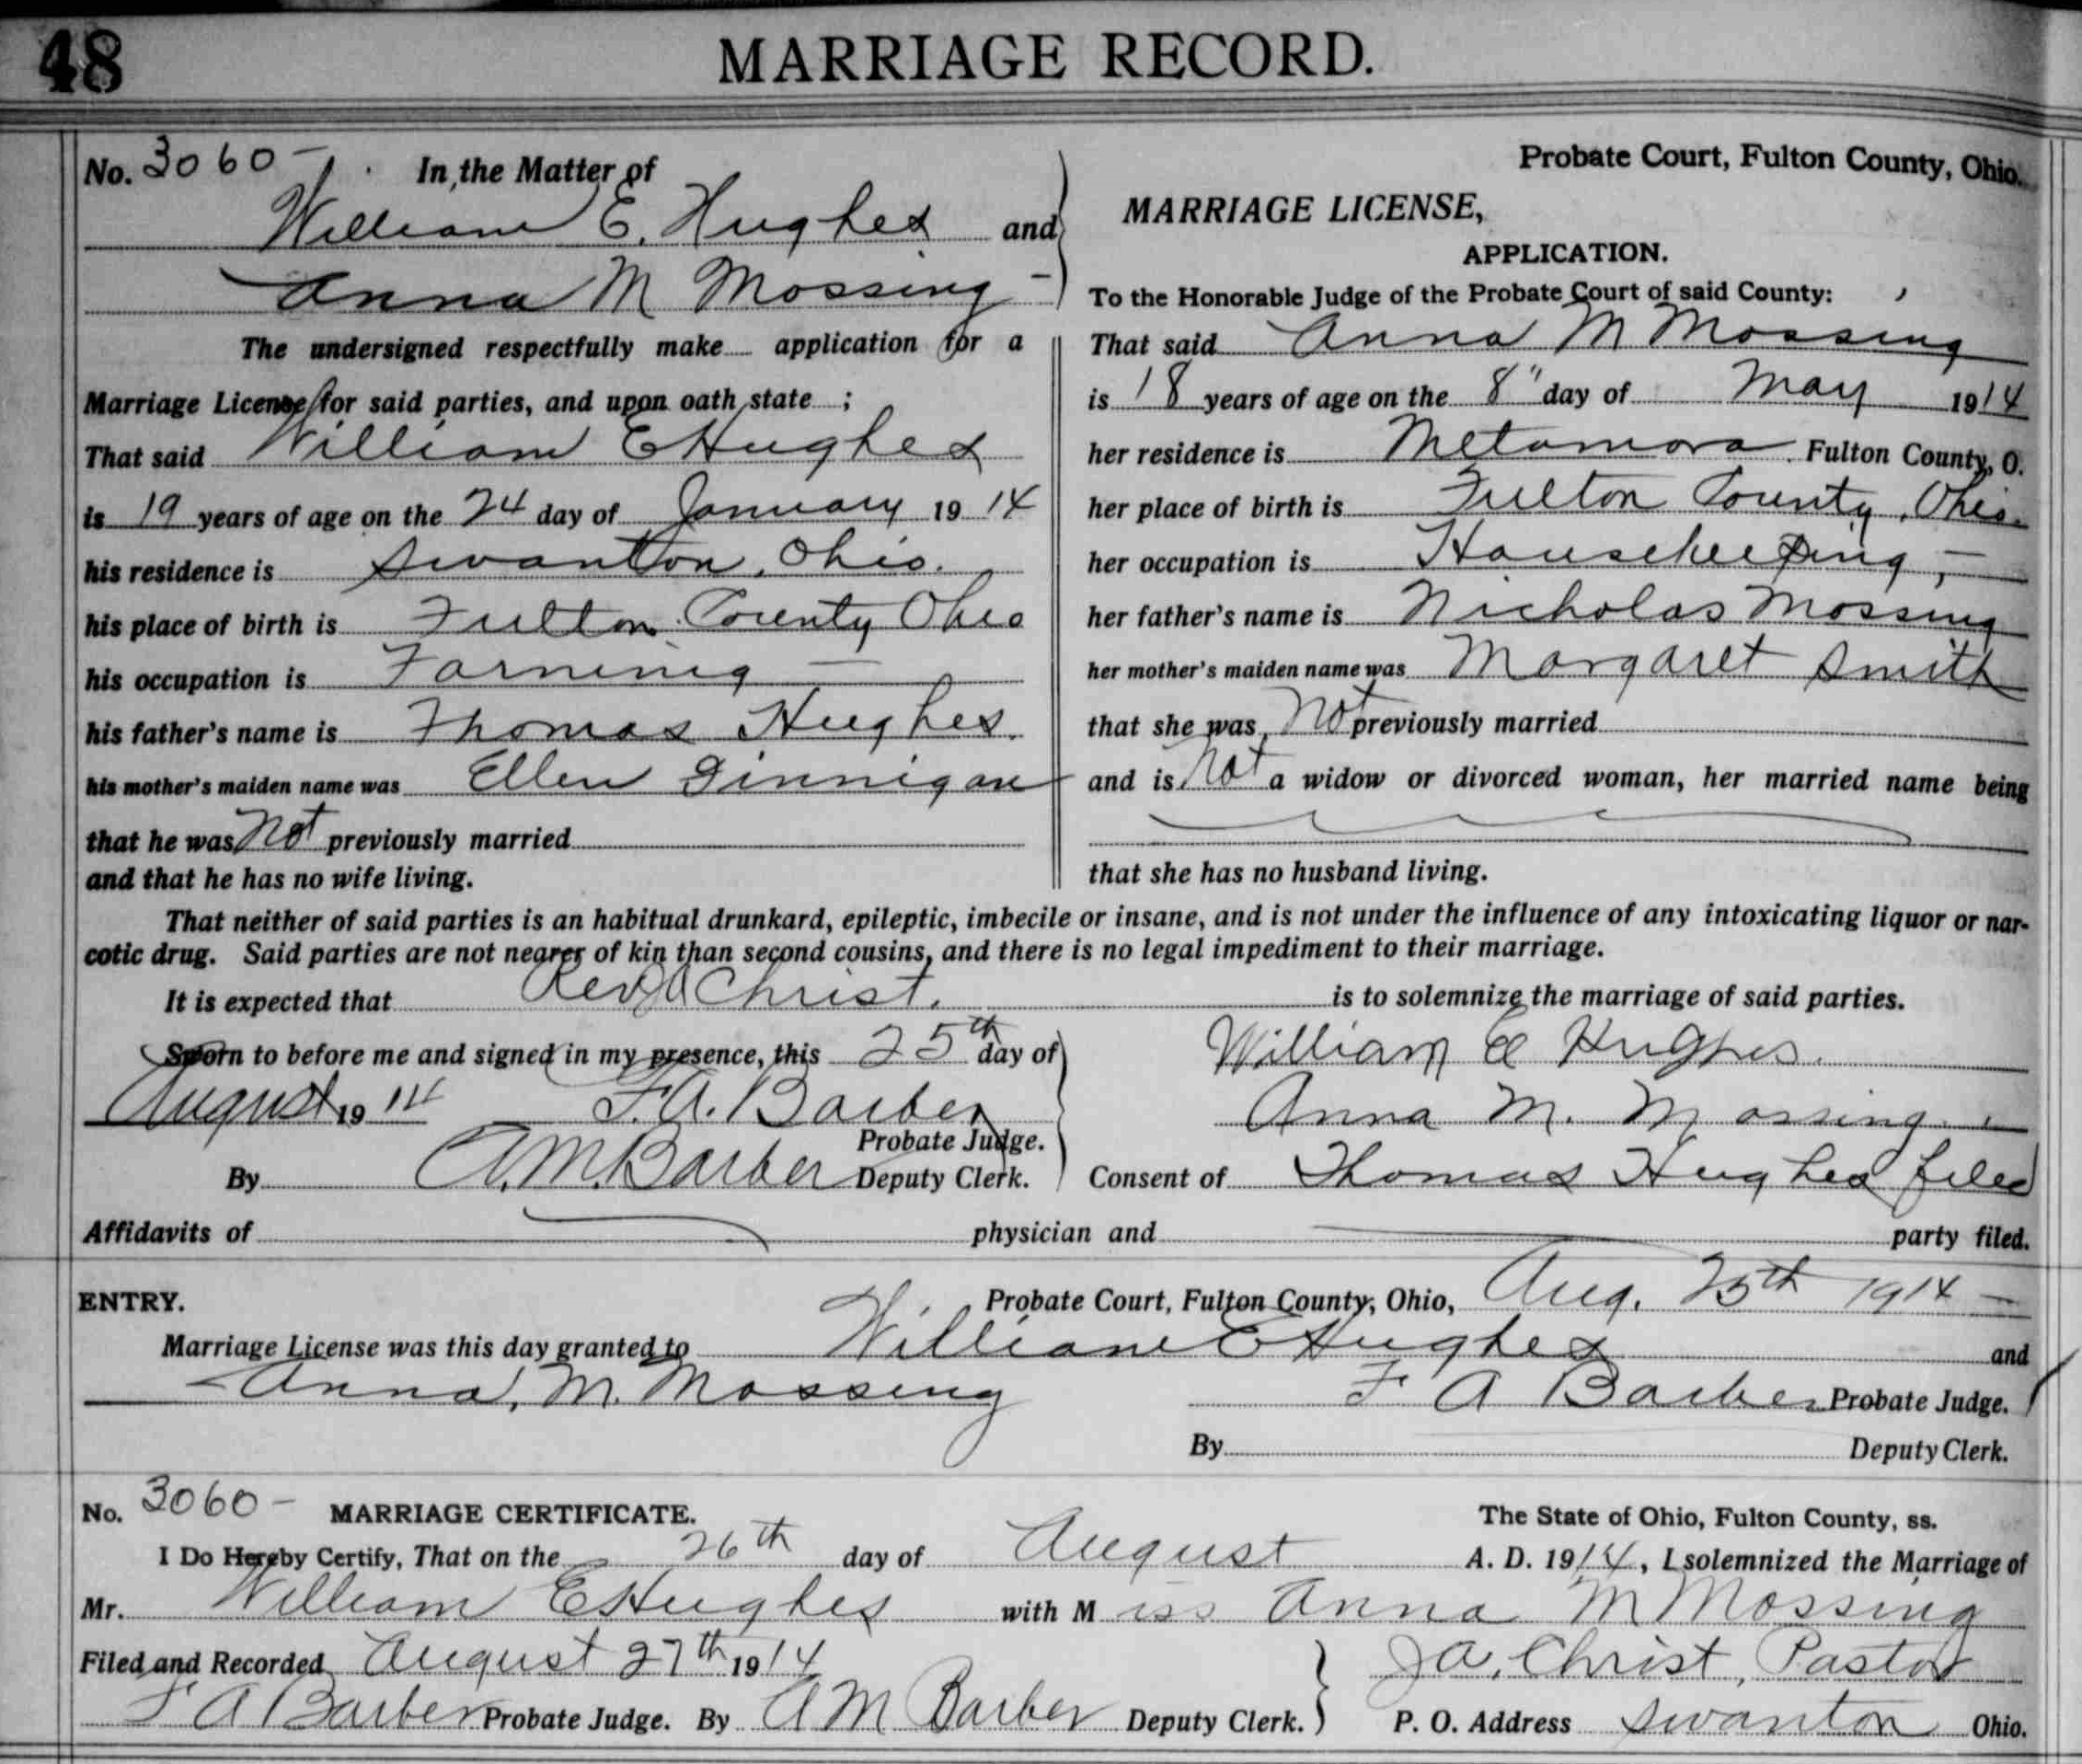 48
MARRIAGE RECORD.
No. 3060 - In the Matter of
William E. Hughes and
Anna M Mossing -
The undersigned respectfully make application for a
Marriage License for said parties, and upon oath state ;
That said William E Hughes
is 19 years of age on the 24 day of January 1914
his residence is Swanton, Ohio.
his place of birth is Fulton County Ohio
his occupation is Farming -
his father's name is Thomas Hughes.
his mother's maiden name was Ellen Finnigan
that he was Not previously married
and that he has no wife living.
Probate Court, Fulton County, Ohio.
MARRIAGE LICENSE,
APPLICATION.
To the Honorable Judge of the Probate Court of said County:
That said Anna M Mossing
is 18 years of age on the 8" day of May 1914
her residence is Metamora Fulton County, O.
her place of birth is Fulton County, Ohio.
her occupation is Housekeeping, -
her father's name is Nicholas Mossing
her mother's maiden name was Margaret Smith
that she was Not previously married
and is Not a widow or divorced woman, her married name being
that she has no husband living.
That neither of said parties is an habitual drunkard, epileptic, imbecile or insane, and is not under the influence of any intoxicating liquor or nar-
cotic drug. Said parties are not nearer of kin than second cousins, and there is no legal impediment to their marriage.
It is expected that Rev JA Christ. is to solemnize the marriage of said parties.
Sworn to before me and signed in my presence, this 25th day of
August 1914 F. A. Barber
Probate Judge.
By A. M. Barber Deputy Clerk.
William E Hughes.
Anna M. Mossing
Consent of Thomas Hughes filed
Affidavits of physician and party filed.
ENTRY. Probate Court, Fulton County, Ohio, Aug. 25th 1914 -
Marriage License was this day granted to William E Hughes and
Anna, M. Mossing F A Barber Probate Judge.
By Deputy Clerk.
No. 3060 - MARRIAGE CERTIFICATE. The State of Ohio, Fulton County, ss.
I Do Hereby Certify, That on the 26th day of August A. D. 1914, I solemnized the Marriage of
Mr. William E Hughes with Miss Anna M Mossing
Filed and Recorded August 27th 1914 J A, Christ, Pastor
F A Barber Probate Judge. By A M Barber Deputy Clerk. P. O. Address Swanton Ohio.